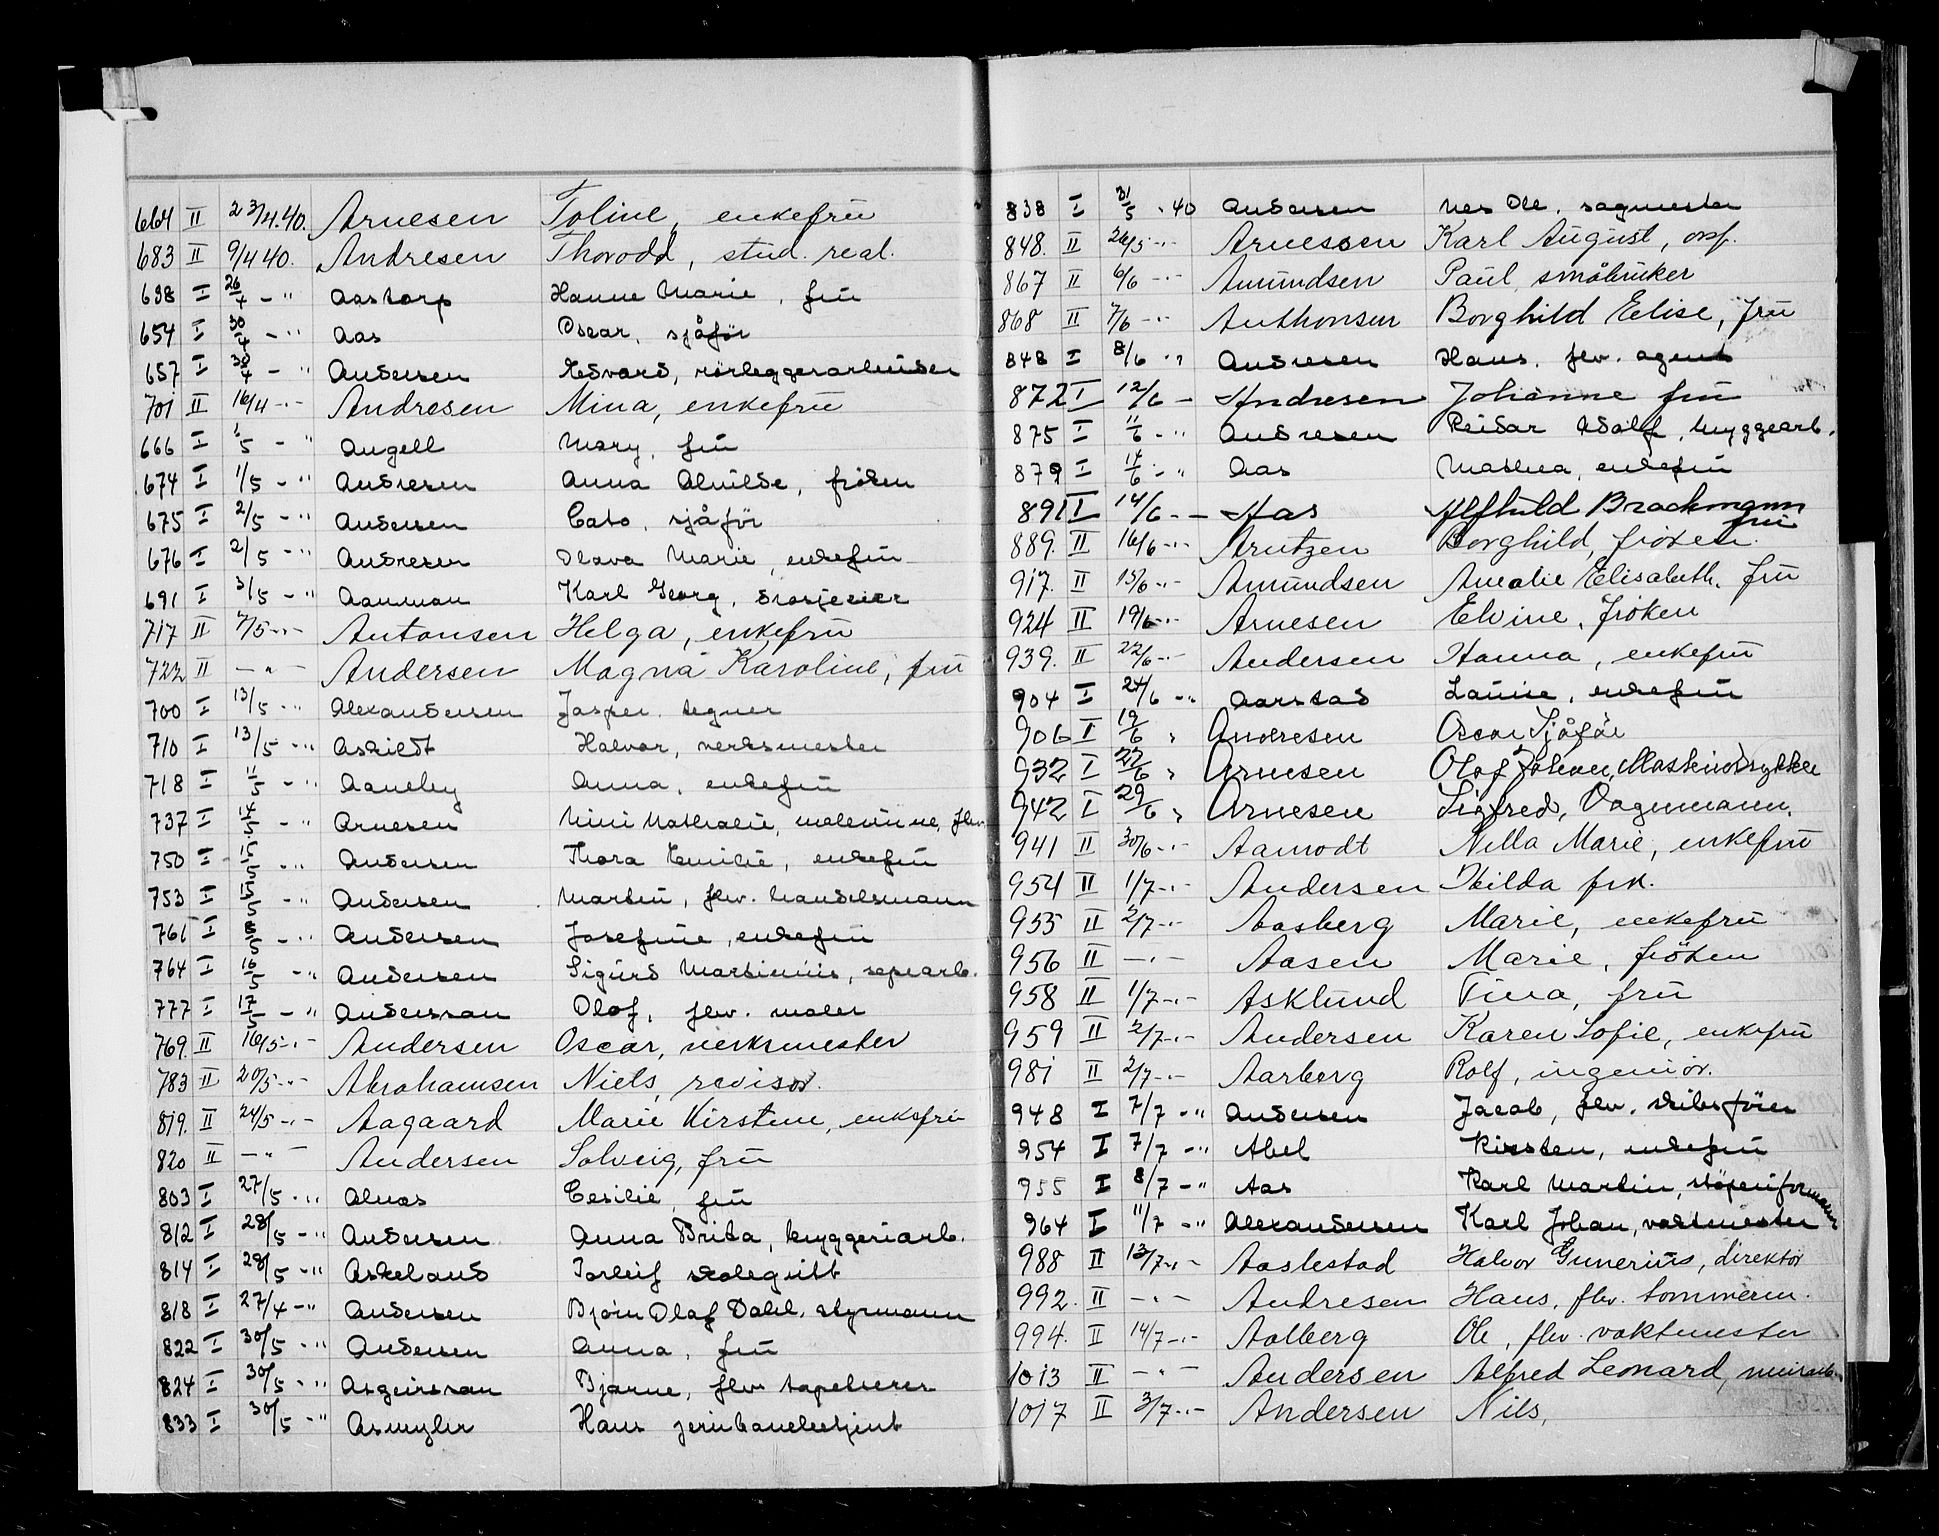 664 II 23/4.40. Arnesen Toline, enkefru
683 II 9/4 40. Andresen Thorodd, stud. real.
638 I 26/4 - " Aastorp Hanne Marie, fru
654 I 30/4 - " Aas Oscar, sjåför
657 I 30/4 - " Andersen Edvard, rörleggerarbeider
701 II 16/4 -"- Andresen Mina, enkefru
666 I 1/5 - " Angell Mary, fru
674 I 1/5 - " Andresen Anna Alvilde, fröken
675 I 2/5 - " Andersen Cato, sjåför
676 I 2/5 - " Andresen Olava Marie, enkefru
691 I 3/5 - " Aanman Karl Georg,
717 II 7/5 -"- Antonsen Helga, enkefru
722 II - " - Andersen Magna Karoline, fru
700 I 13/5 - " Alexandersen Jasper, tegner
710 I 13/5 - " Askildt Halvor, verksmester
718 I 11/5 - " Aaneby Anna, enkefru
737 I 14/5 - " Arnesen Nini Nathalie, malerinne,
750 I 15/5 - " Andersen Thora Emilie, enkefru
753 I 15/5 - " Andersen Martin, fhv. handelsmann
761 I /5 - " Andersen Josefine, enkefru
764 I 16/5 - " Andersen Sigurd Martinius, separb.
777 I 17/5 - " Anderssan Olof, fhv. maler
769. II 16/5 -"- Andersen Oscar, verksmester
783 II 20/5 -"- Abrahamsen Niels, revisor.
819. II 24/5 -"- Aagaard Marie Kirstine, enkefru
820 II - " - Andersen Solveig, fru
803 I 27/5 - " Alnæs Cesilie, fru
812 I 28/5 - " Andersen Anna Brita, bryggeriarb.
814 I 28/5 - " Askeland Torleif skolegutt
818 I 27/4 - " Andersen Björn Olaf Dahl, styrmann
822 I 30/5 - " Andersen Anna, fru
824 I 30/5 - " Asgeirssan Bjarne, fhv. tapetserer
833 I 30/5 - " Asmyhr Hans jernbanebetjent
838 I 31/5 - 40 Andersen Ole, sagmester
848. II 26/5 -"- Arnessen Karl August,
867 II 6/6 -"- Amundsen Paul, småbruker
868 II 7/6 -"- Anthonsen Borghild Elise, fru
848 I 8/6 - " Andresen Hans, fhv. agent
872 I 12/6 - Andresen Johanne fru
875 I 11/6 - " Andresen Reidar Adolf, bryggearb.
879 I 14/6 - " Aas Mathea, enkefru
891 I 14/6 - - Aas Alfhild Brackmann fru
889. II 16/6 -"- Arntzen Borghild, fröken.
917. II 15/6 -"- Amundsen Amalie Elisabeth, fru
924 II 19/6 -"- Arnesen Elvine, fröken
939. II 22/6 -"- Andersen Hanna, enkefru
904 I 24/6 - " Aarstad Laura, enkefru
906 I 19/6 " Andresen Oscar Sjåför
932 I 22/6 " Arnesen Olaf Johan,
942 I 29/6 " Arnesen Sigfred, Vognmann.
941 II 30/6 -"- Aamodt Nilla Marie, enkefru
954 II 1/7 -"- Andersen Hilda frk.
955 II 2/7 -"- Aasberg Marie, enkefru
956 II - " - Aasen Marie, fröken
958 II 1/7 -"- Asklund Tina, fru
959 II 2/7 -"- Andersen Karen Sofie, enkefru
981 II 2/7 -"- Aarberg Rolf, ingeniör.
948 I 7/7 - " Andersen Jacob, fhv. skibsförer
954 I 7/7 - " Abel Kirsten, enkefru
955 I 8/7 - " Aas Karl Martin, stöperiformann
964 I 11/7 - " Alexandersen Karl Johan, vaktmester
988 II 13/7 -"- Aaslestad Halvor Gunerius, direktör
992. II - " - Andresen Hans, fhv. tömmerm.
994. II 14/7 -"- Aalberg Ole, fhv. vaktmester
1013 II - " - Andersen Alfred Leonard, murarb.
1017 II 3/7 -"- Andersen Nils,